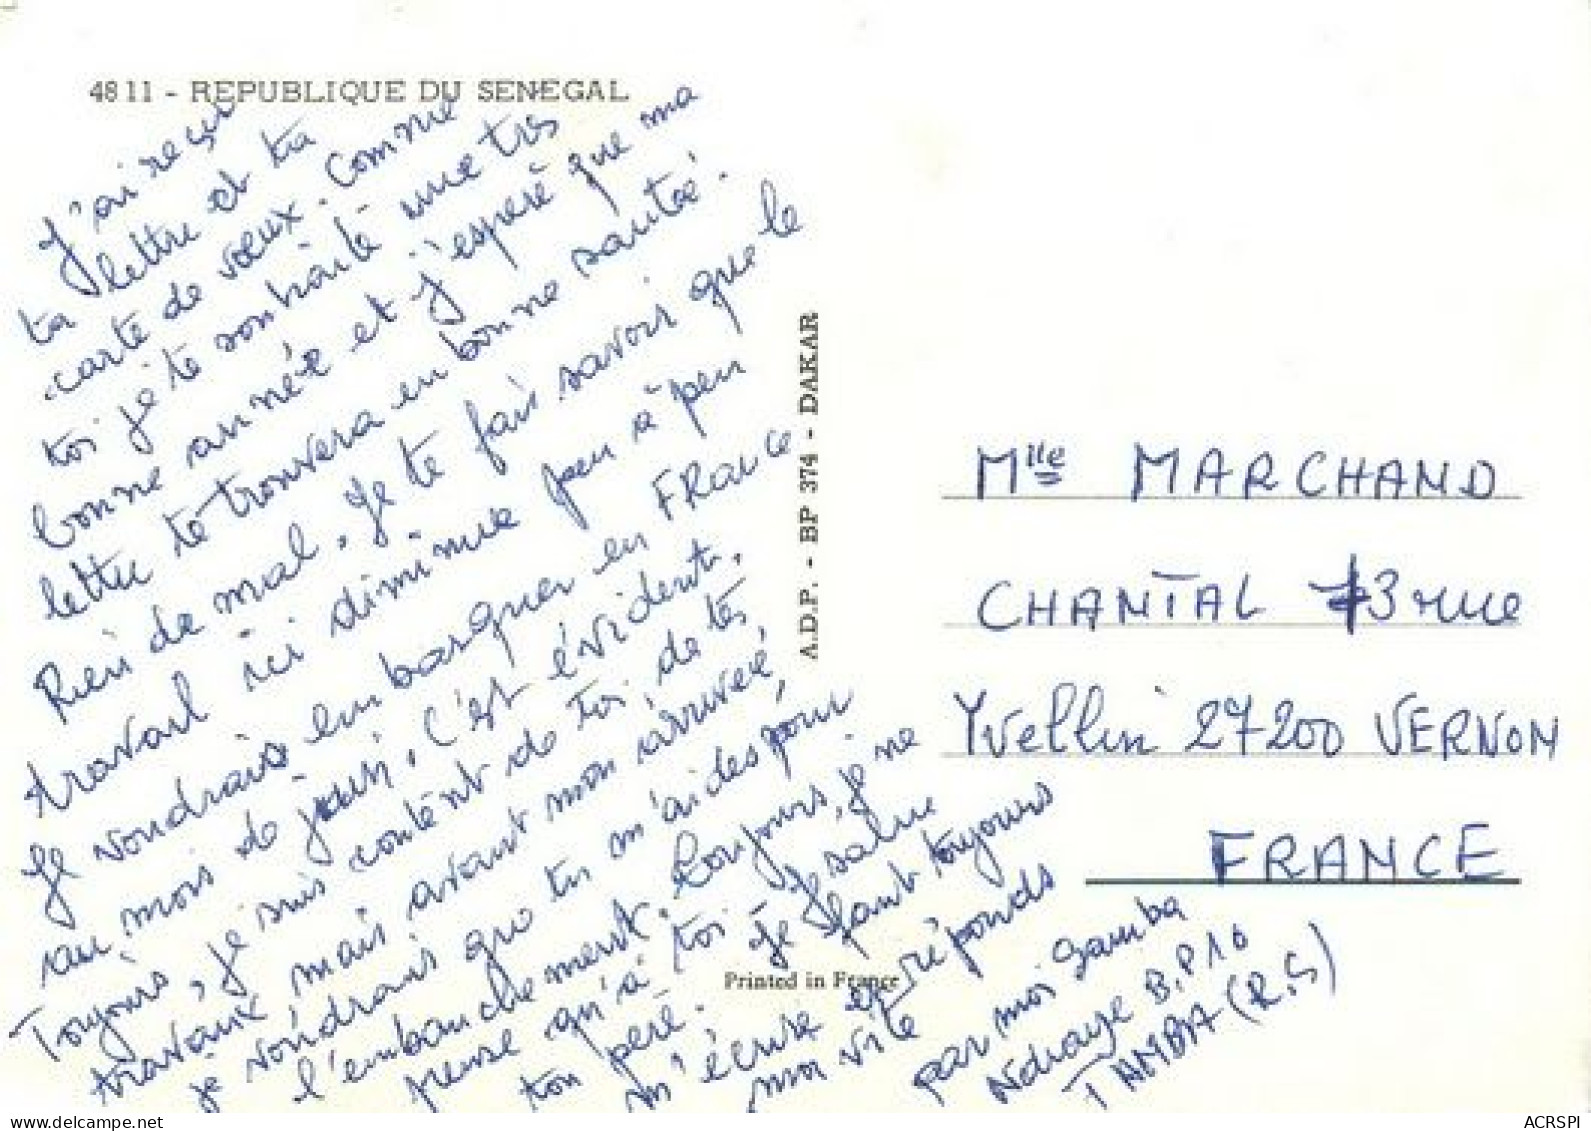 4811 - REPUBLIQUE DU SENEGAL
J'ai reçu
ta lettre et ta
carte de vœux. Comme
toi je te sonhaité une tres
bonne année et j'esperé que ma
lettre te trouvera en bonne santée.
Rien de mal. Je te fais savoir que le
travail ici diminue peu à peu
Je voudrais embarquer en FRance
au mois de juin. C'est évident.
Toujours, je suis contént de toi, de tés
travaux, mais avant mon arrivée,
je voudrais que tu m'aides pour
l'embauchement. Bonjours, je ne
pense qu'à toi. Je salue
ton peré. Il faut toujours
m'écrire et réponds
moi vite
par moi Samba
Ndiaye B.P 10
TAMBA (R.S)
A.D.P. - BP 374 - DAKAR
Printed in France
Mlle MARCHAND
CHANTAL 73 rue
Yvellin 27200 VERNON
FRANCE
ACRSPI